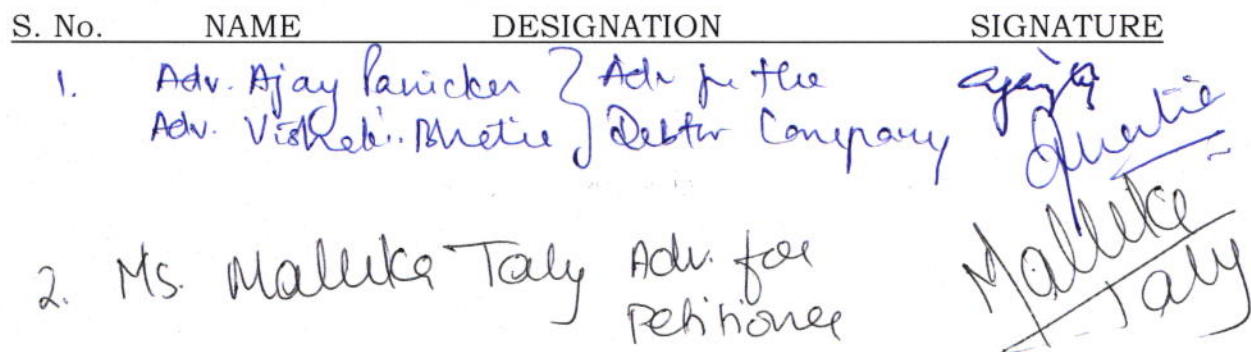 S. No. NAME DESIGNATION SIGNATURE
1. Adv. Ajay Panicker } Adv for the
Adv. Bhatia } Debtor Company
2. Ms. Mallika Taly Adv. for
Petitioner
Mallika
Taly